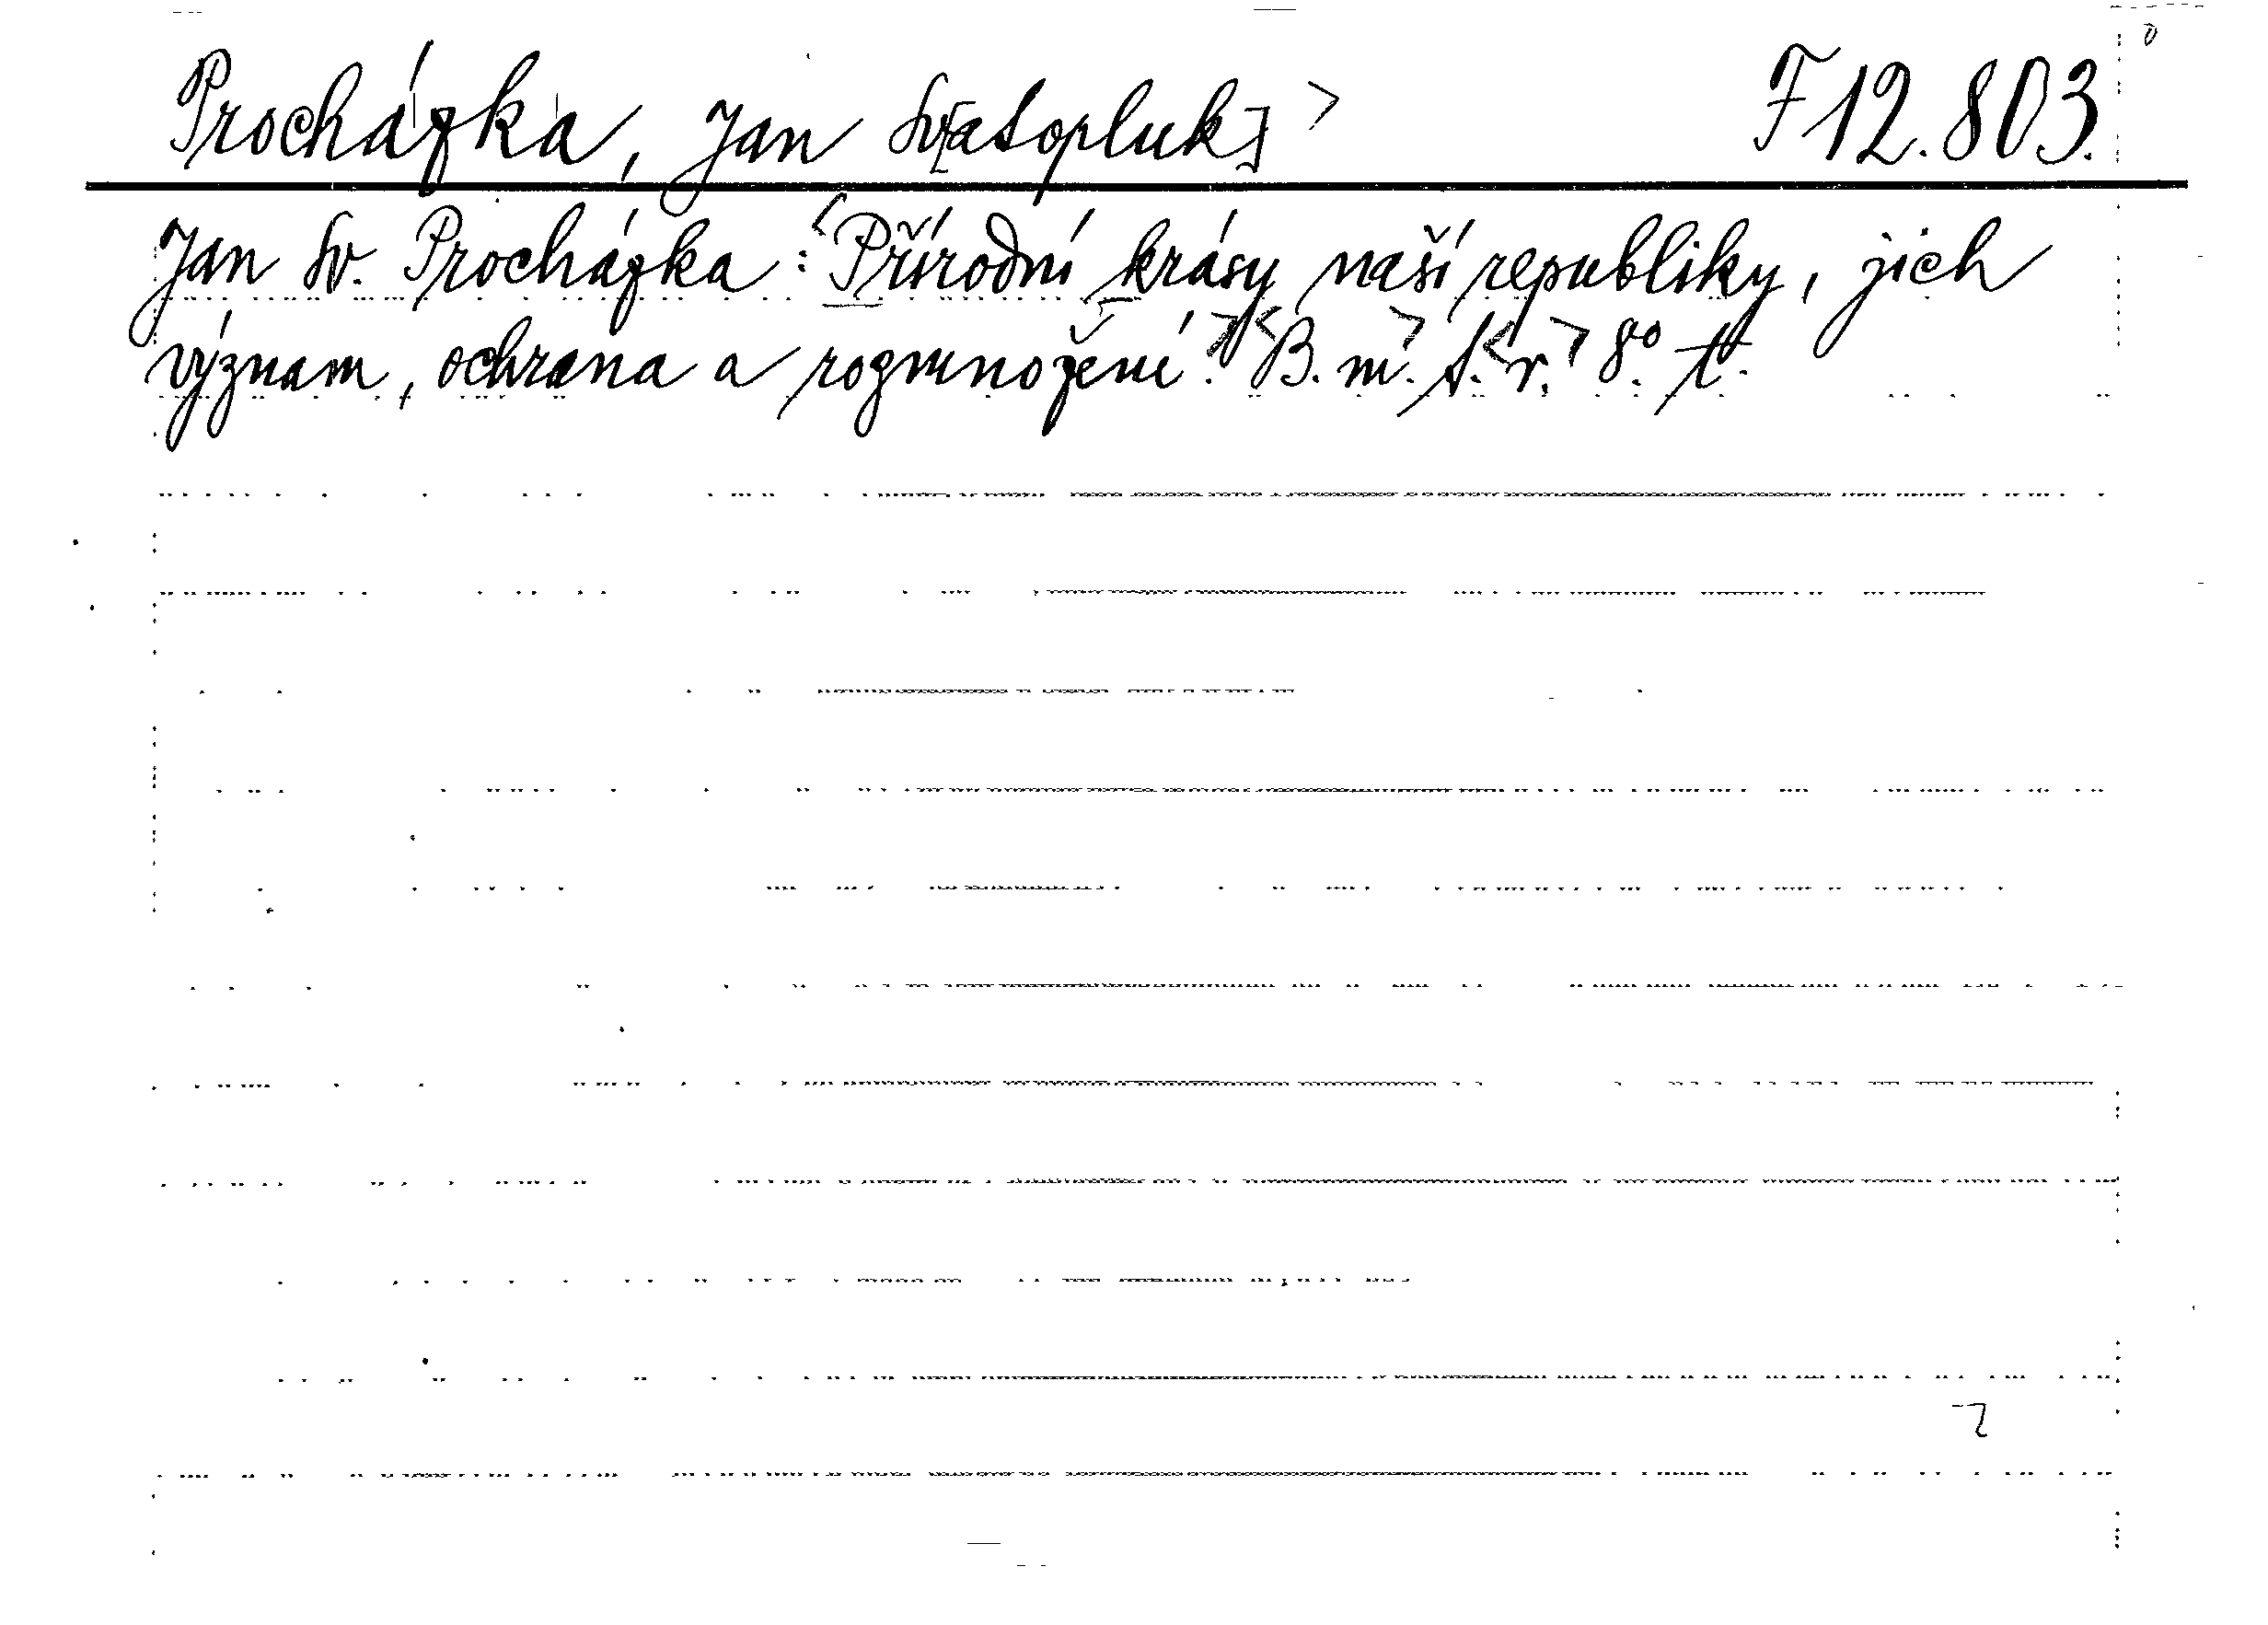 Procházka, Jan Sv[atopluk] > F 12.803.
Jan Sv. Procházka: <Přírodní krásy naší republiky, jich
význam, ochrana a rozmnožení.> <B. m.> S. <r.> 8° t.